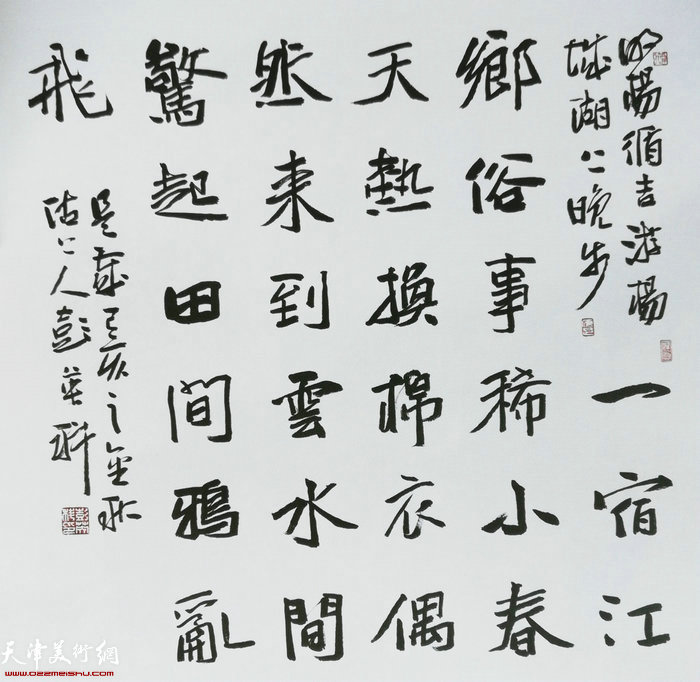 明楊循吉游楊
城湖上晚步
一宿江
鄉俗事稀小春
天熱換棉衣偶
然来到雲水間
驚起田間鴉亂
飛
是歲己亥之金秋
沽上人彭英科
天津美術網
www.022meishu.com